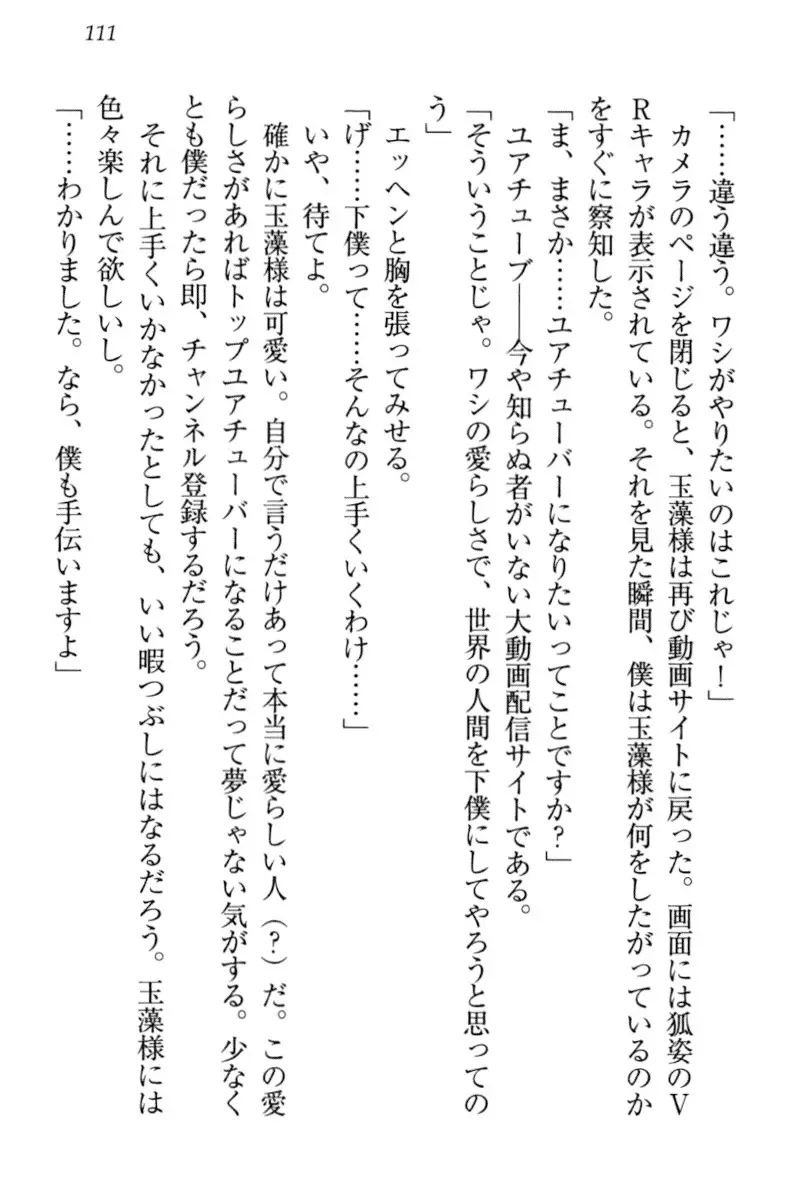 111
「……違う違う。ワシがやりたいのはこれじゃ！」
　カメラのページを閉じると、玉藻様は再び動画サイトに戻った。画面には狐姿のＶ
Ｒキャラが表示されている。それを見た瞬間、僕は玉藻様が何をしたがっているのか
をすぐに察知した。
「ま、まさか……ユアチューバーになりたいってことですか？」
　ユアチューブ――今や知らぬ者がいない大動画配信サイトである。
「そういうことじゃ。ワシの愛らしさで、世界の人間を下僕にしてやろうと思っての
う」
　エッヘンと胸を張ってみせる。
「げ……下僕って……そんなの上手くいくわけ……」
　いや、待てよ。
　確かに玉藻様は可愛い。自分で言うだけあって本当に愛らしい人（？）だ。この愛
らしさがあればトップユアチューバーになることだって夢じゃない気がする。少なく
とも僕だったら即、チャンネル登録するだろう。
　それに上手くいかなかったとしても、いい暇つぶしにはなるだろう。玉藻様には
色々楽しんで欲しいし。
「……わかりました。なら、僕も手伝いますよ」